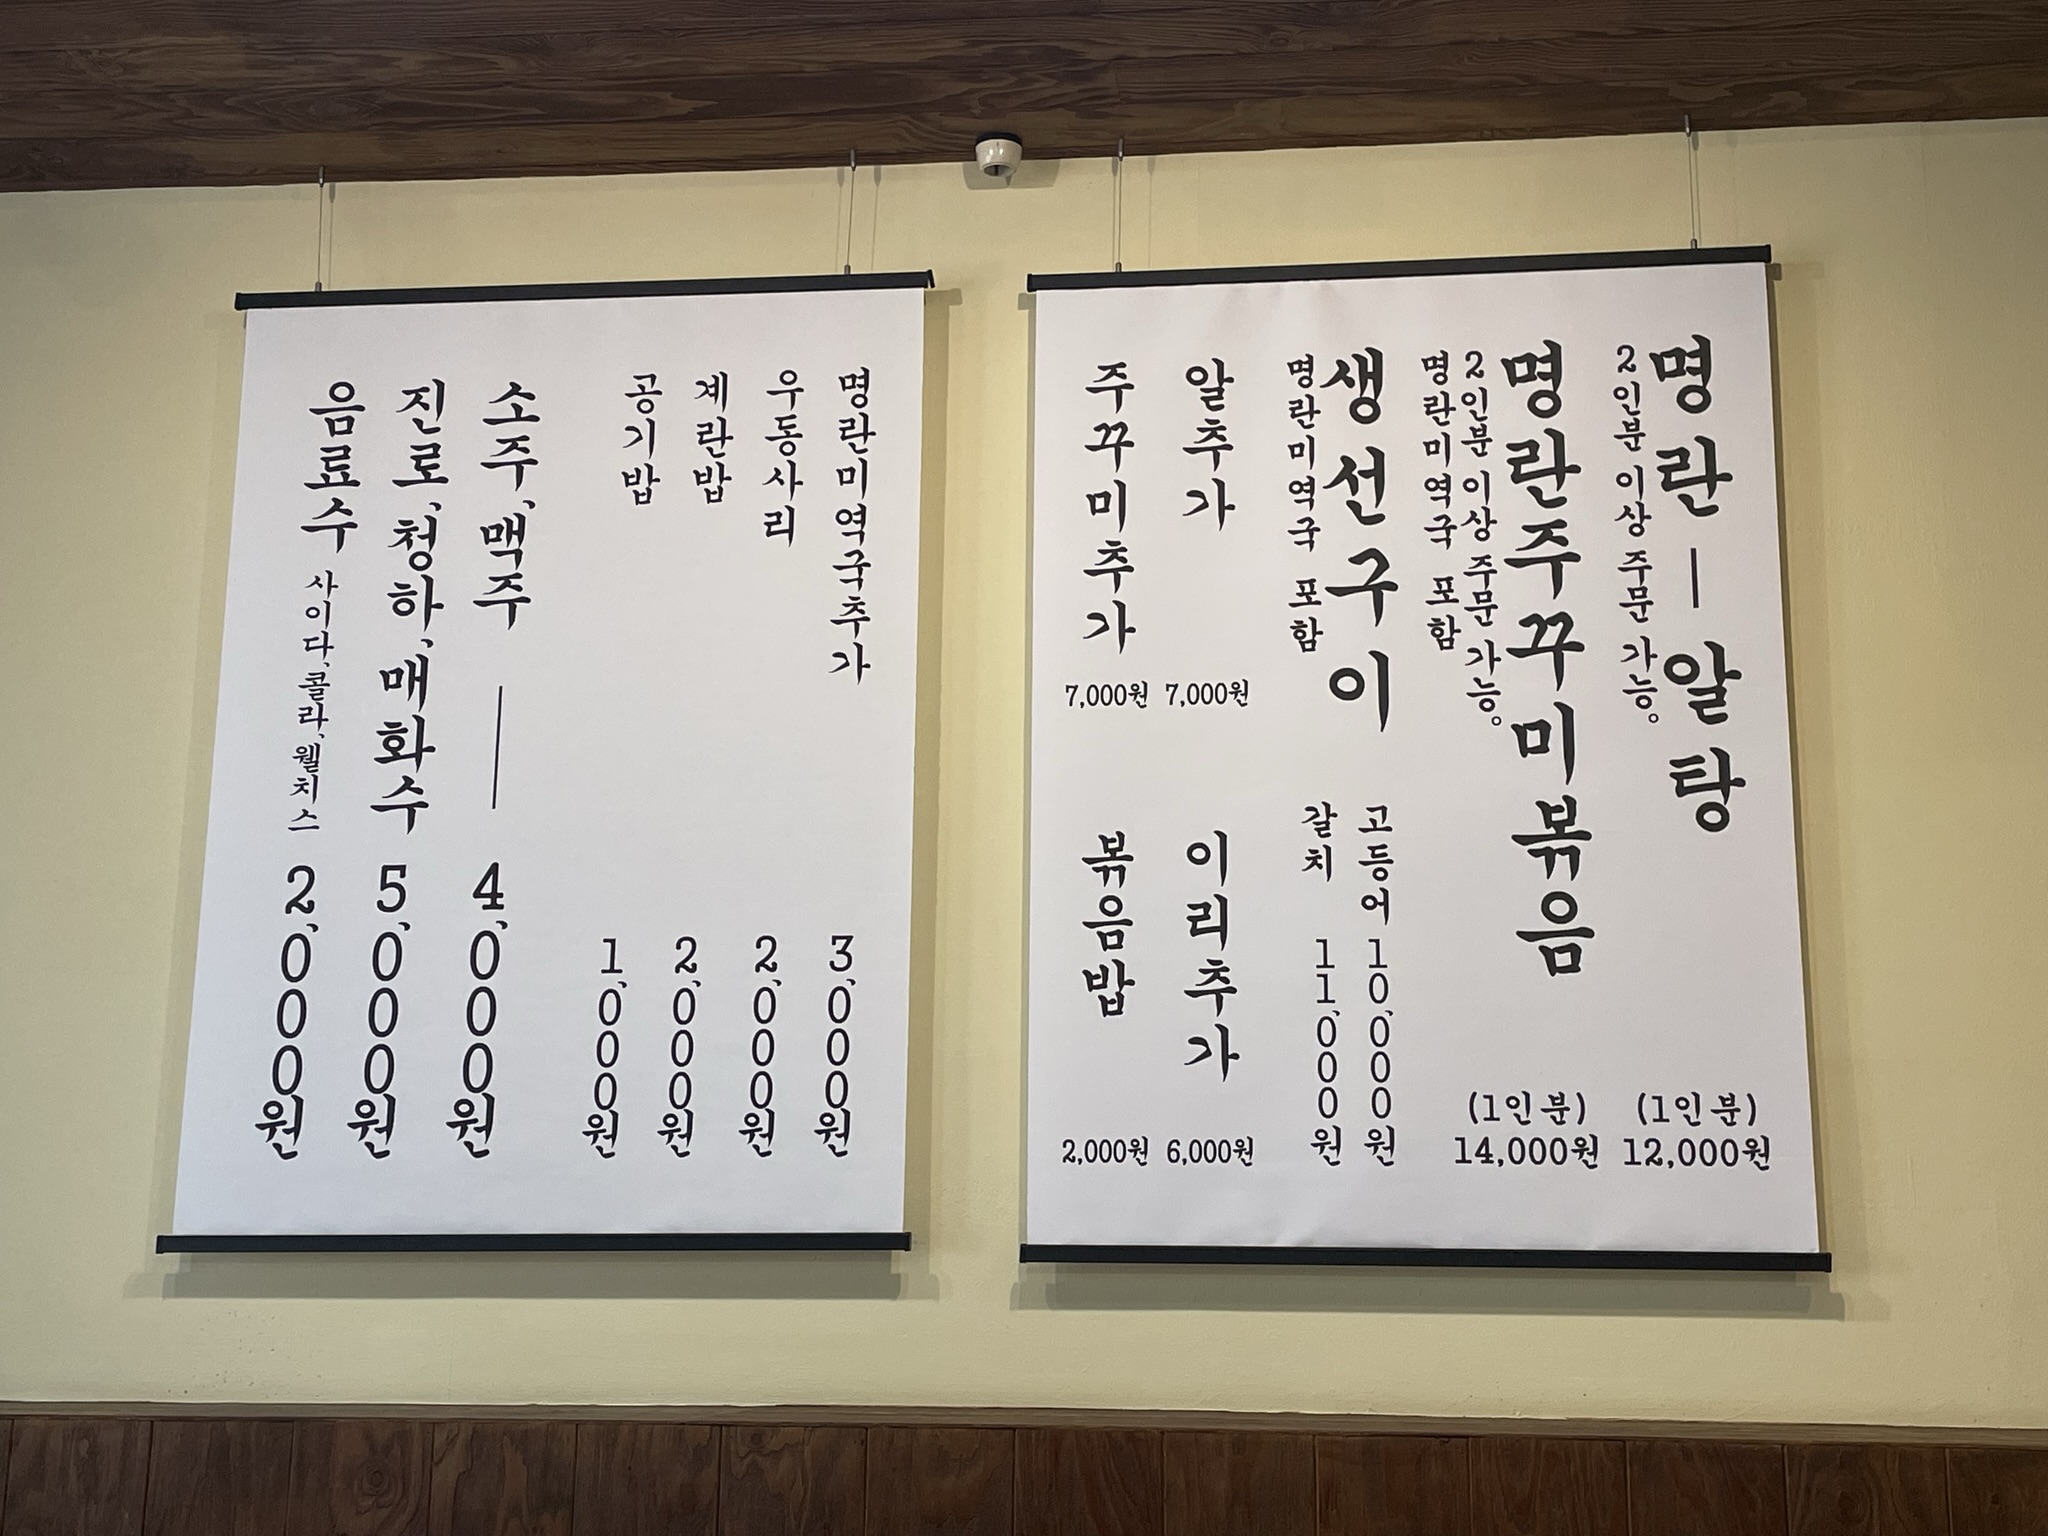 명란 — 알탕
2인분 이상 주문 가능。
(1인분)
12,000원
명란주꾸미볶음
2인분 이상 주문 가능。
명란미역국 포함
(1인분)
14,000원
생선구이
명란미역국 포함
고등어 10,000원
갈치 11,000원
알추가 7,000원
이리추가 6,000원
주꾸미추가 7,000원
볶음밥 2,000원
명란미역국추가 3,000원
우동사리 2,000원
계란밥 2,000원
공기밥 1,000원
소주, 맥주 — 4,000원
진로, 청하, 매화수 5,000원
음료수 사이다, 콜라, 웰치스 2,000원